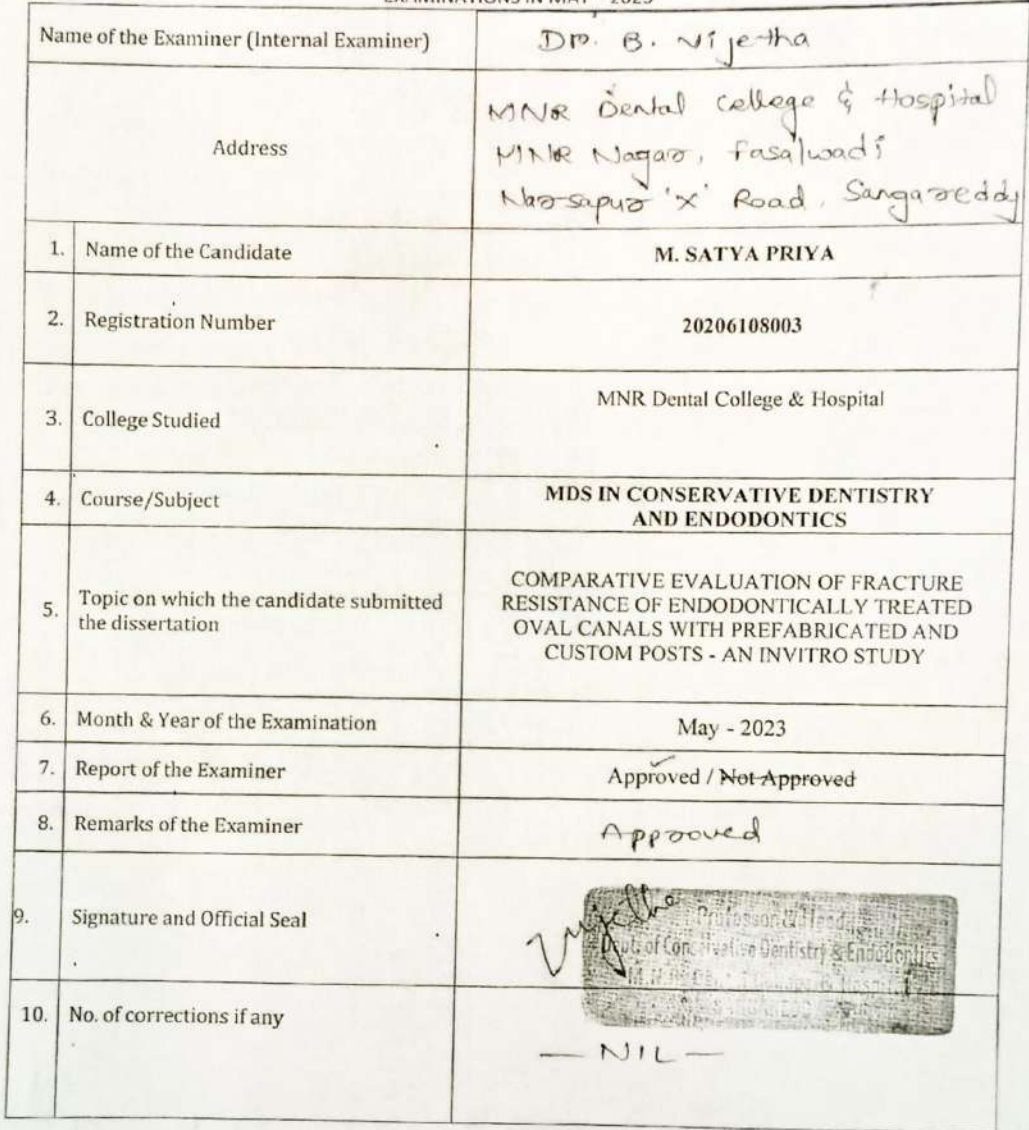 EXAMINATIONS IN MAY - 2023
Name of the Examiner (Internal Examiner)
Dr. B. Vijetha
Address
MNR Dental College & Hospital
MNR Nagar, Fasalwadi
Narsapur 'X' Road, Sangareddy
1. Name of the Candidate
M. SATYA PRIYA
2. Registration Number
20206108003
3. College Studied
MNR Dental College & Hospital
4. Course/Subject
MDS IN CONSERVATIVE DENTISTRY
AND ENDODONTICS
5. Topic on which the candidate submitted
the dissertation
COMPARATIVE EVALUATION OF FRACTURE
RESISTANCE OF ENDODONTICALLY TREATED
OVAL CANALS WITH PREFABRICATED AND
CUSTOM POSTS - AN INVITRO STUDY
6. Month & Year of the Examination
May - 2023
7. Report of the Examiner
Approved / Not Approved
8. Remarks of the Examiner
Approved
9. Signature and Official Seal
Vijetha
Professor & Head
Dept. of Conservative Dentistry & Endodontics
10. No. of corrections if any
— NIL —